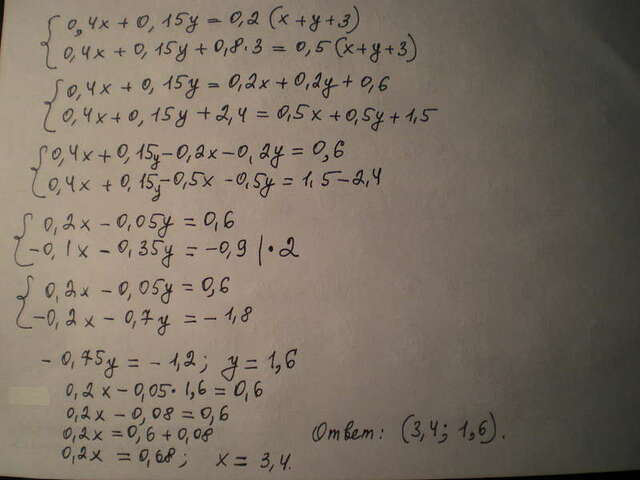 0,4x + 0,15y = 0,2 (x+y+3)
0,4x + 0,15y + 0,8·3 = 0,5(x+y+3)
0,4x + 0,15y = 0,2x + 0,2y + 0,6
0,4x + 0,15y + 2,4 = 0,5x + 0,5y + 1,5
0,4x + 0,15y - 0,2x - 0,2y = 0,6
0,4x + 0,15y - 0,5x - 0,5y = 1,5 - 2,4
0,2x - 0,05y = 0,6
-0,1x - 0,35y = -0,9 |·2
0,2x - 0,05y = 0,6
-0,2x - 0,7y = -1,8
-0,75y = -1,2; y = 1,6
0,2x - 0,05·1,6 = 0,6
0,2x - 0,08 = 0,6
0,2x = 0,6 + 0,08
0,2x = 0,68; x = 3,4.
Ответ: (3,4; 1,6).